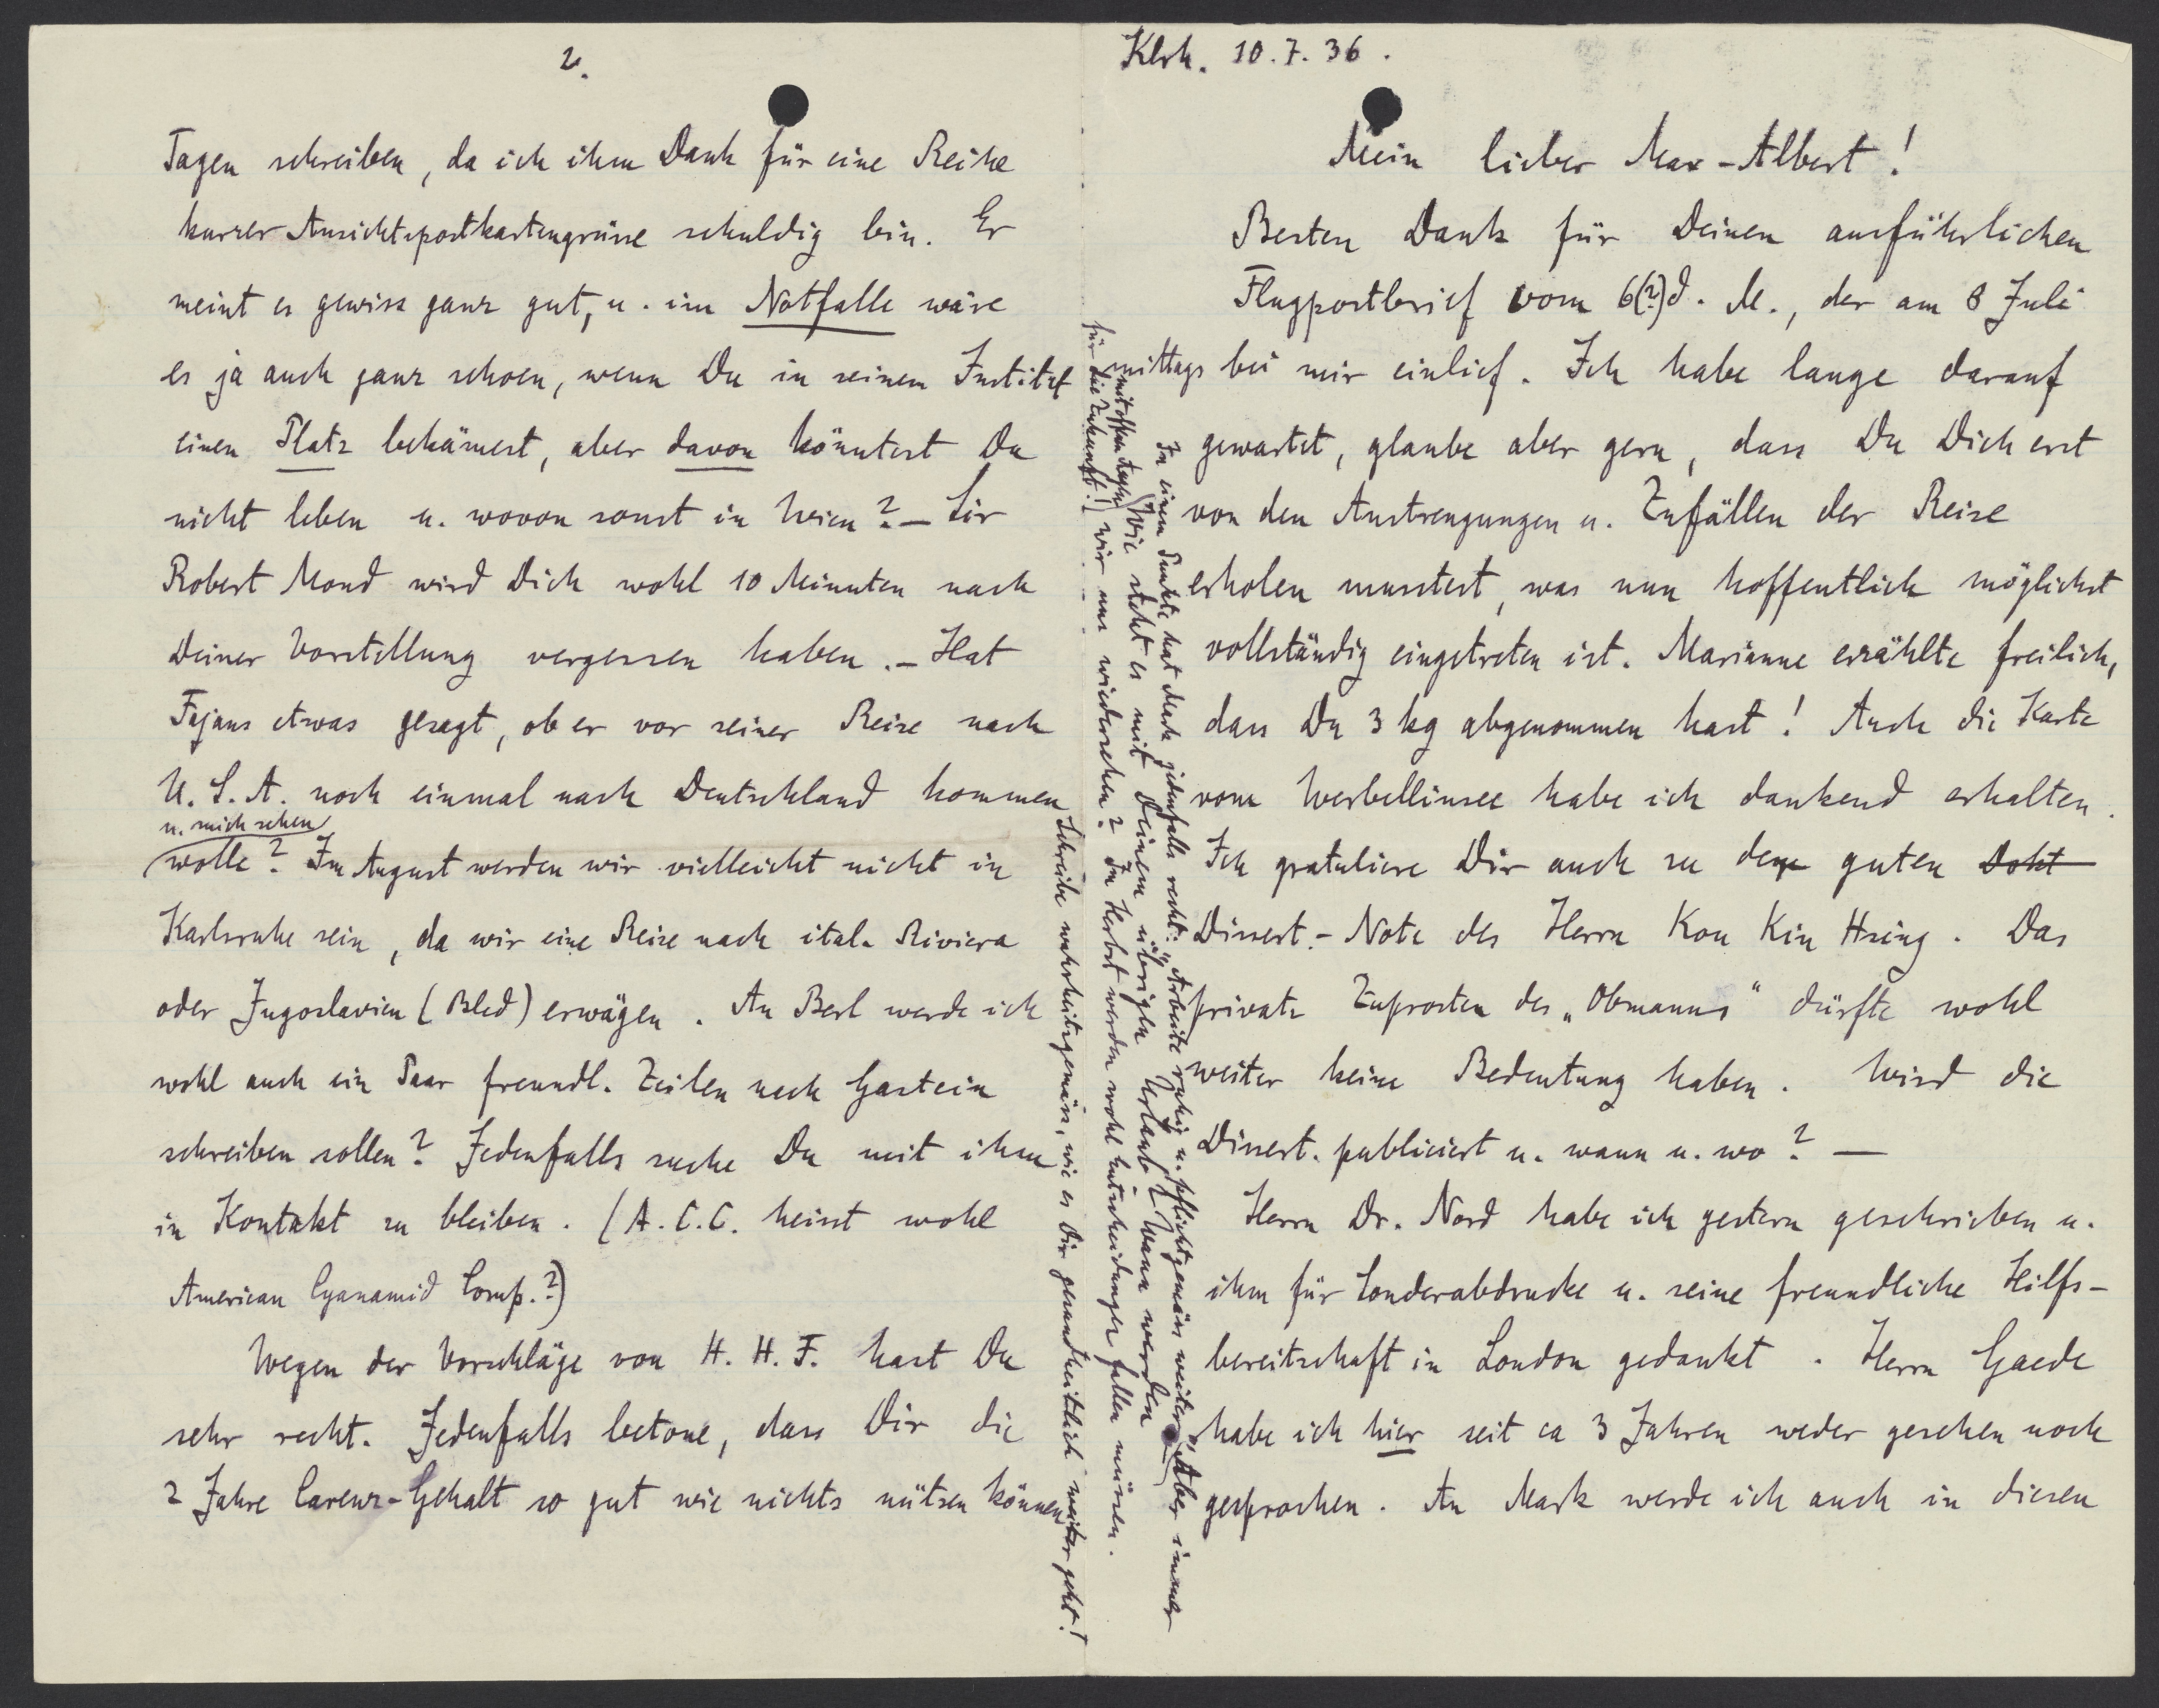 Klrh. 10.7.36.
Mein lieber Max-Albert!
Besten Dank für Deinen ausführlichen
Flugpostbrief vom 6(?) d. M., der am 8 Juli
mittags bei mir einlief. Ich habe lange darauf
gewartet, glaube aber gern, dass Du Dich erst
von den Anstrengungen u. Zufällen der Reise
erholen musstest, was nun hoffentlich möglichst
vollständig eingetreten ist. Marianne erzählte freilich,
dass Du 3 kg abgenommen hast! Auch die Karte
vom Werbellinsee habe ich dankend erhalten.
Ich gratuliere Dir auch zu der guten Dokt
Dissert.-Note des Herrn Kou Kin Hsing. Das
private Zuprosten des „Obmanns“ dürfte wohl
weiter keine Bedeutung haben. Wird die
Dissert. publiciert u. wann u. wo? —
Herrn Dr. Nord habe ich gestern geschrieben u.
ihm für Sonderabdrucke u. seine freundliche Hilfs-
bereitschaft in London gedankt. Herrn Gaede
habe ich hier seit ca 3 Jahren weder gesehen noch
gesprochen. An Mark werde ich auch in diesen
2.
Tagen schreiben, da ich ihm Dank für eine Reihe
kurzer Ansichtspostkartengrüsse schuldig bin. Er
meint es gewiss ganz gut, u. im Notfalle wäre
es ja auch ganz schoen, wenn Du in seinem Institut
einen Platz bekämest, aber davon könntest Du
nicht leben u. wovon sonst in Wien? — Sir
Robert Mond wird Dich wohl 10 Minuten nach
Deiner Vorstellung vergessen haben. — Hat
Fajans etwas gesagt, ob er vor seiner Reise nach
U.S.A. noch einmal nach Deutschland kommen
u. mich sehen
wolle? Im August werden wir vielleicht nicht in
Karlsruhe sein, da wir eine Reise nach ital. Riviera
oder Jugoslavien (Bled) erwägen. An Berl werde ich
wohl auch ein Paar freundl. Zeilen nach Gastein
schreiben sollen? Jedenfalls suche Du mit ihm
in Kontakt zu bleiben. (A.C.C. heisst wohl
American Cyanamid Comp.?)
Wegen der Vorschläge von H. H. F. hast Du
sehr recht. Jedenfalls betone, dass Dir die
2 Jahre Carenz-Gehalt so gut wie nichts nützen können
In einem Punkte hat Mark jedenfalls recht: „Arbeite ruhig u. pflichtgemäss weiter“. Aber immer
mit offenen Augen
für die Zukunft!
Wie steht es mit Deinem übrigen Urlaub? Wann werden
wir uns wiedersehen? Im Herbst werden wohl Entscheidungen fallen müssen.
Schreibe wahrheitsgemäss, wie es Dir gesundheitlich weiter geht!